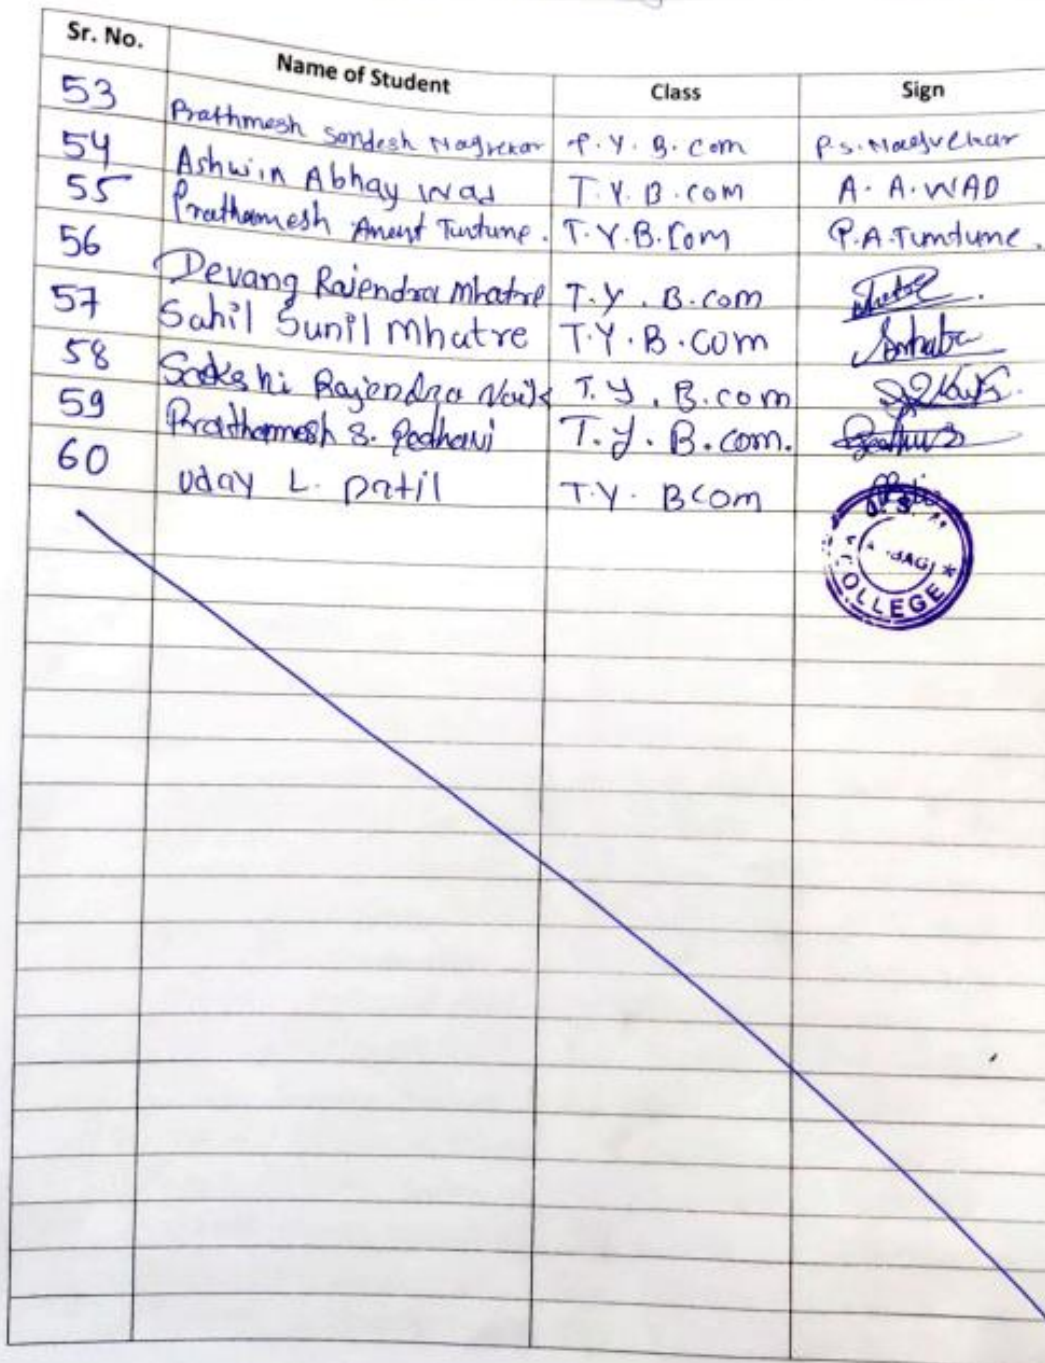 Sr. No. Name of Student Class Sign
53 Prathmesh Sandesh Nagvekar T.Y.B.com P.S.Nagvekar
54 Ashwin Abhay Wad T.Y.B.com A.A.WAD
55 Prathamesh Anant Tuntune. T.Y.B.Com P.A.Tuntune.
56 Devang Rajendra Mhatre T.Y.B.com
57 Sahil Sunil Mhatre T.Y.B.com
58 Sakshi Rajendra Naik T.Y.B.com
59 Prathamesh S. T.Y.B.com.
60 Uday L. Patil T.Y. BCom
COLLEGE